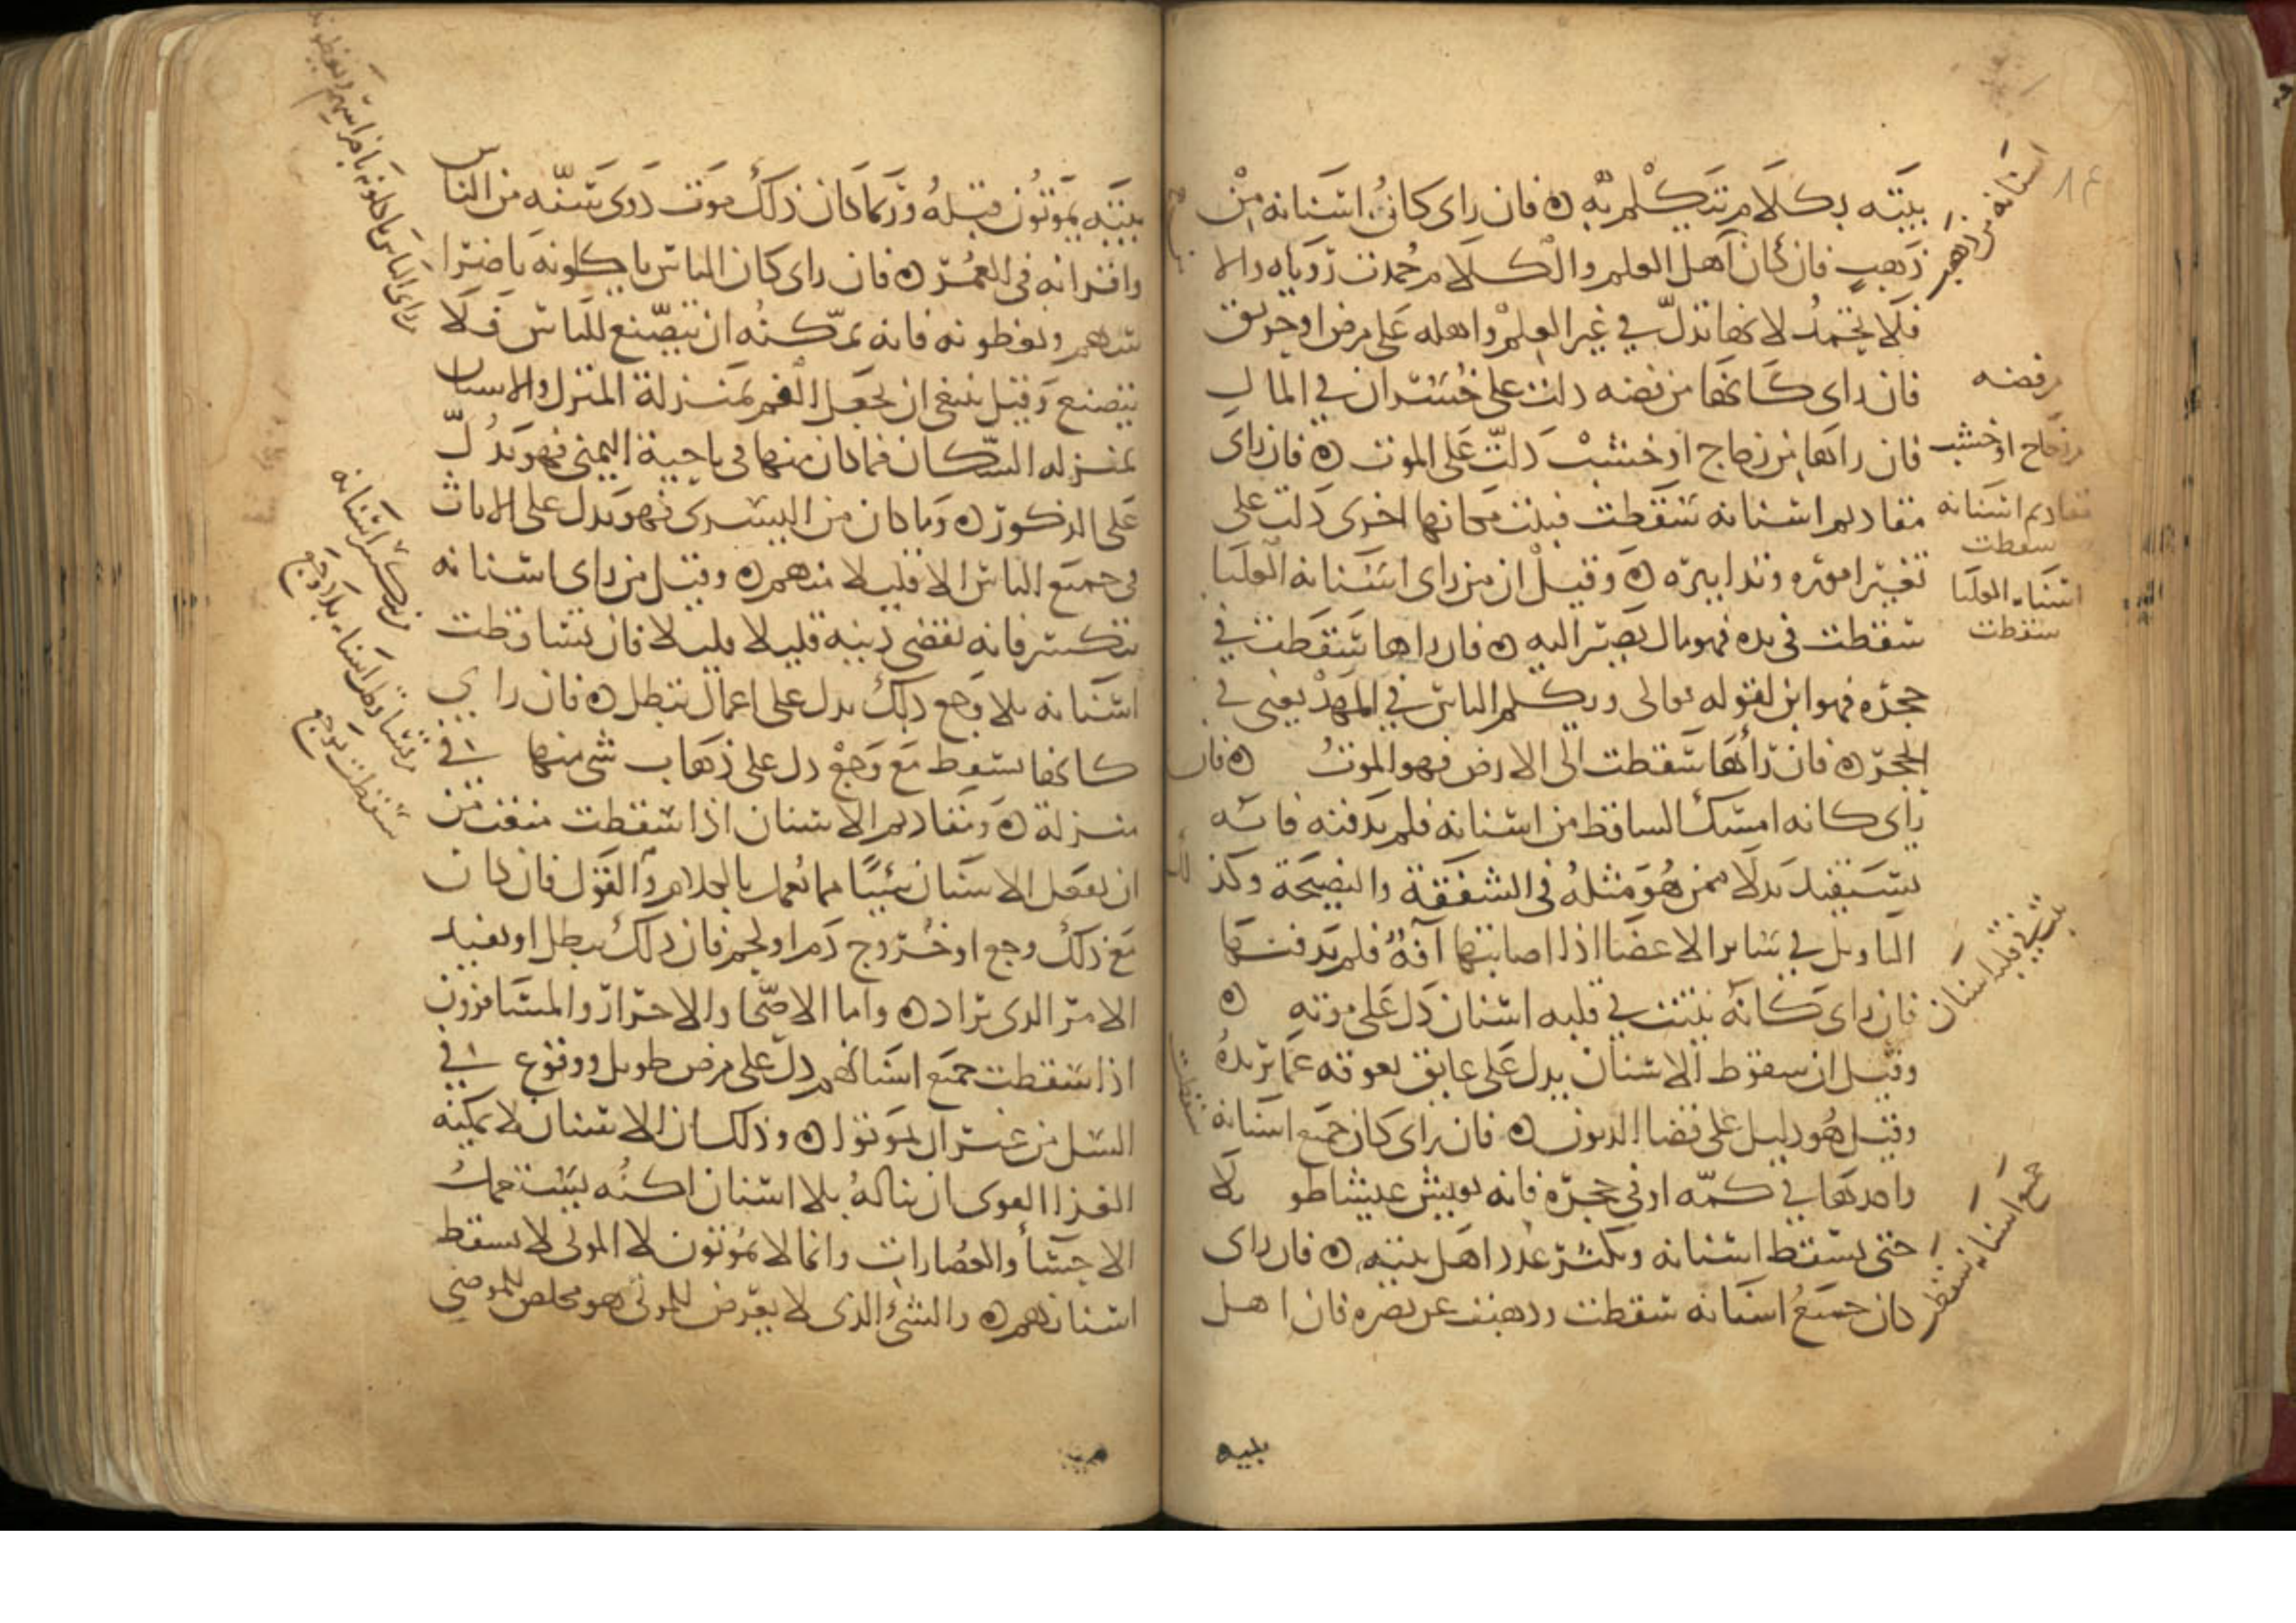 بيته بكلام يتكلم به ۵ فان راى كان اسنانه من
ذهب فان كان اهل العلم والكلام حمدت روياه والا
فلا يحمد لانها تدل في غير العلم واهله على مرض او حريق
فان راى كانها من فضه دلت على خسران في المال
فان راها من زجاج او خشب دلت على الموت ۵ فان راى
مقاديم اسنانه سقطت فنبت مكانها اخرى دلت على
تغير اموره وتدابيره ۵ وقيل ان من راى اسنانه العليا
سقطت في يده فهو مال يصير اليه ۵ فان راها سقطت في
حجره فهو ابن لقوله تعالى ويكلم الناس في المهد يعنى في
الحجر ۵ فان راها سقطت الى الارض فهو الموت ۵ فان
راى كانه امسك الساقط من اسنانه فلم يدفنه فانه
يستفيد بدلا ممن هو مثله في الشفقة والنصيحة وكذلك
التاويل في ساير الاعضا اذا اصابتها آفة فلم يدفنها
فان راى كانه نبتت في قلبه اسنان دل على موته ۵
وقيل ان سقوط الاسنان يدل على عايق يعوقه عما يريده
وقيل هو دليل على قضا الديون ۵ فان راى كان جميع اسنانه سقطت
واخدها في كمه او في حجره فانه يعيش عيشا طويلا
حتى يسقط اسنانه ويكثر عدد اهل بيته ۵ فان راى
كان جميع اسنانه سقطت وذهبت عن بصره فان اهل
بيته
اسنانه من ذهب
من فضه
من زجاج او خشب
مقاديم اسنانه
سقطت
اسنانه العليا
سقطت
نبت في قلبه اسنان
جميع اسنانه سقط
بيته يموتون قبله وربما كان ذلك موت ذوى سنه من الناس
واقرانه في العمر ۵ فان راى كان الناس ياكلونه باضرا
سهم ويعظونه فانه يمكنه ان يتصنع للناس فلا
يتصنع وقيل ينبغى ان يجعل الفم بمنزلة المنزل والاسنان
بمنزله السكان فما كان منها في ناحية اليمنى فهو يدل
على الذكور ۵ وما كان من اليسرى فهو يدل على الاناث
في جميع الناس الا قليلا منهم ۵ وقيل من راى اسنانه
تتكسر فانه يقضى دينه قليلا قليلا فان تساقطت
اسنانه بلا وجع ذلك يدل على اعمال تبطل ۵ فان راى
كانها تسقط مع وجع دل على ذهاب شى منها في
منزلة ۵ ومقاديم الاسنان اذا سقطت منعت من
ان يفعل الانسان شيا مما يعمل بالكلام والقول فان كان
مع ذلك وجع او خروج دم او لحم فان ذلك يبطل او يفسد
الامر الدى يراد ۵ واما الاصحا والاحرار والمسافرون
اذا سقطت جميع اسنانهم دل على مرض طويل ووقوع في
السل من غير ان يموتوا ۵ وذلك ان الانسان لا يمكنه
الغذا القوى ان يناله بلا اسنان لكنه يستعمل
الاحسا والعصارات وانما لا يموتون لان الموتى لا تسقط
اسنانهم ۵ والشئ الذى لا يعرض للموتى هو مخلص للمرضى
راى الناس ياكلونه باضراسهم ويعظونه
من تكسر اسنانه
تساقط اسنانه بلا وجع
سقطت بوجع